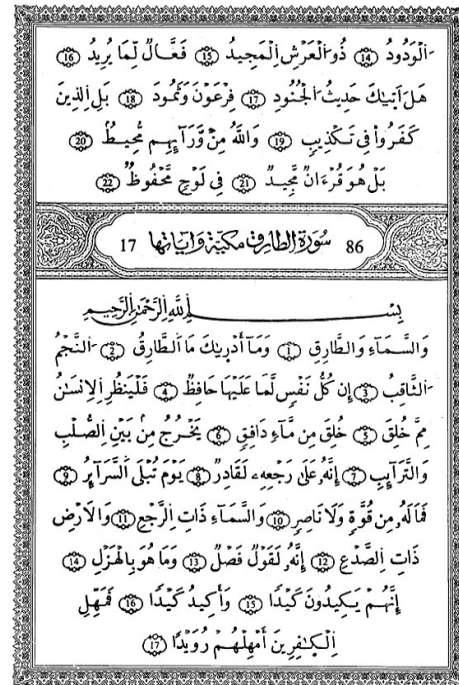 اَلْوَدُودُ 14 ذُو اُ۬لْعَرْشِ اِ۬لْمَجِيدُ 15 فَعَّالٌ لِّمَا يُرِيدُ 16
هَلَ اَت۪يٰكَ حَدِيثُ اُ۬لْجُنُودِ 17 فِرْعَوْنَ وَثَمُودَ 18 بَلِ اِ۬لذِينَ
كَفَرُواْ فِي تَكْذِيبٖ 19 وَاللَّهُ مِنْ وَّرَآئِهِم مُّحِيطٌۢ 20
بَلْ هُوَ قُرْءَانٌ مَّجِيدٌ 21 فِي لَوْحٍ مَّحْفُوظٌ 22
86 سُورَةُ الطَّارِقِ مَكِّيَّة وَءَايَاتُهَا 17
بِسْمِ اِ۬للَّهِ اِ۬لرَّحْمَٰنِ اِ۬لرَّحِيمِ
وَالسَّمَآءِ وَالطَّارِقِ 1 وَمَآ أَدْر۪يٰكَ مَا اَ۬لطَّارِقُ 2 اُ۬لنَّجْمُ
اُ۬لثَّاقِبُ 3 إِن كُلُّ نَفْسٖ لَّمَا عَلَيْهَا حَافِظٌ 4 فَلْيَنظُرِ اِ۬لِانسَٰنُ
مِمَّ خُلِقَ 5 خُلِقَ مِن مَّآءٖ دَافِقٖ 6 يَخْرُجُ مِنۢ بَيْنِ اِ۬لصُّلْبِ
وَالتَّرَآئِبِ 7 إِنَّهُۥ عَلَىٰ رَجْعِهِۦ لَقَادِرٌ 8 يَوْمَ تُبْلَى اَ۬لسَّرَآئِرُ 9
فَمَا لَهُۥ مِن قُوَّةٖ وَلَا نَاصِرٖ 10 وَالسَّمَآءِ ذَاتِ اِ۬لرَّجْعِ 11 وَالَارْضِ
ذَاتِ اِ۬لصَّدْعِ 12 إِنَّهُۥ لَقَوْلٌ فَصْلٌ 13 وَمَا هُوَ بِالْهَزْلِ 14
إِنَّهُمْ يَكِيدُونَ كَيْدًا 15 وَأَكِيدُ كَيْدًا 16 فَمَهِّلِ
اِ۬لْكٰ۪فِرِينَ أَمْهِلْهُمْ رُوَيْدًا 17